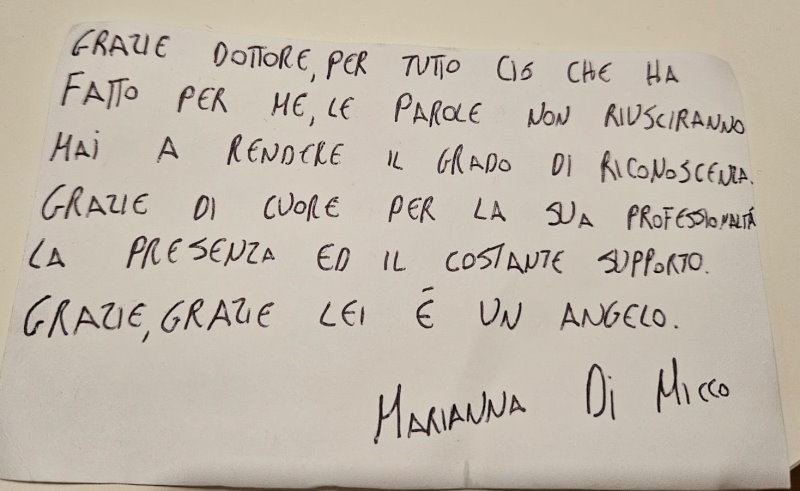 GRAZIE DOTTORE, PER TUTTO CIÓ CHE HA
FATTO PER ME, LE PAROLE NON RIUSCIRANNO
MAI A RENDERE IL GRADO DI RICONOSCENZA.
GRAZIE DI CUORE PER LA SUA PROFESSIONALTÁ
LA PRESENZA ED IL COSTANTE SUPPORTO.
GRAZIE, GRAZIE LEI É UN ANGELO.
MARIANNA Di MICCO